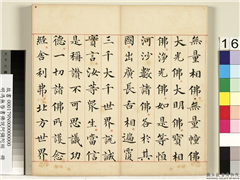 無量相佛無量幢佛
大光佛大明佛寶相
佛淨光佛如是等恒
河沙數諸佛各於其
國出廣長舌相遍覆
三千大千世界說誠
實言汝等眾生當信
是稱讚不可思議功
德一切諸佛所護念
經舍利弗北方世界
16